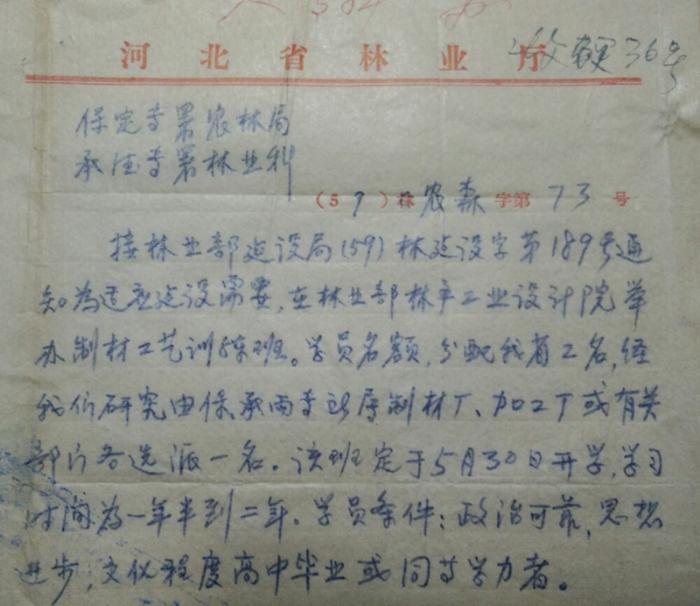 河北省林业厅
收 36号
保定专署农林局
承德专署林业科
（59）林农森字第73号
接林业部建设局（59）林建设字第189号通
知为适应建设需要，在林业部林产工业设计院举
办制材工艺训练班。学员名额，分配我省2名，经
我们研究由保、承两专区原制材厂、加工厂或有关
部门各选派一名。该班定于5月30日开学，学习
时间为一年半到二年。学员条件：政治可靠，思想
进步，文化程度高中毕业或同等学力者。